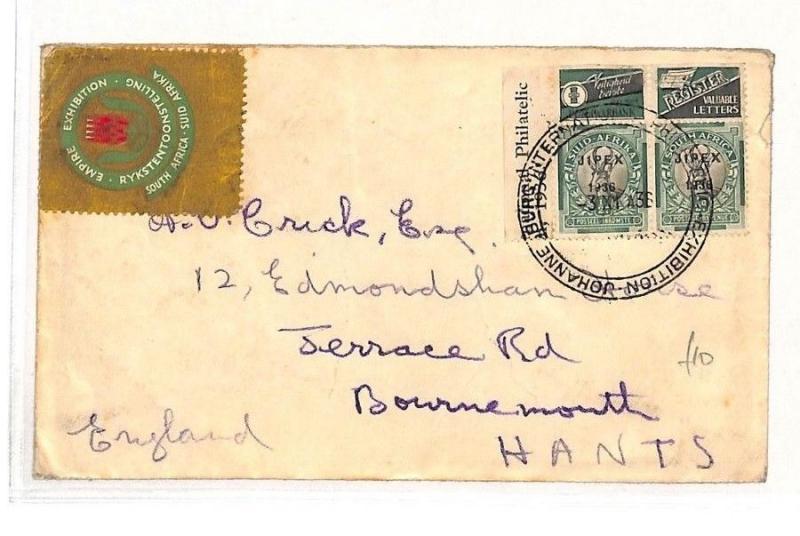 EMPIRE EXHIBITION · RYKSTENTOONSTELLING
SOUTH AFRICA · SUID AFRIKA
Philatelic
REGISTER
VALUABLE
LETTERS
SUID-AFRIKA
JIPEX
1936
POSSEEL INKOMSTE
SOUTH AFRICA
JIPEX
1936
EXHIBITION-JOHANNESBURG-1936-INTERNATIONAL
A.V. Crick, Esq.
12, Edmondsham House
Terrace Rd
Bournemouth
HANTS
England
£10